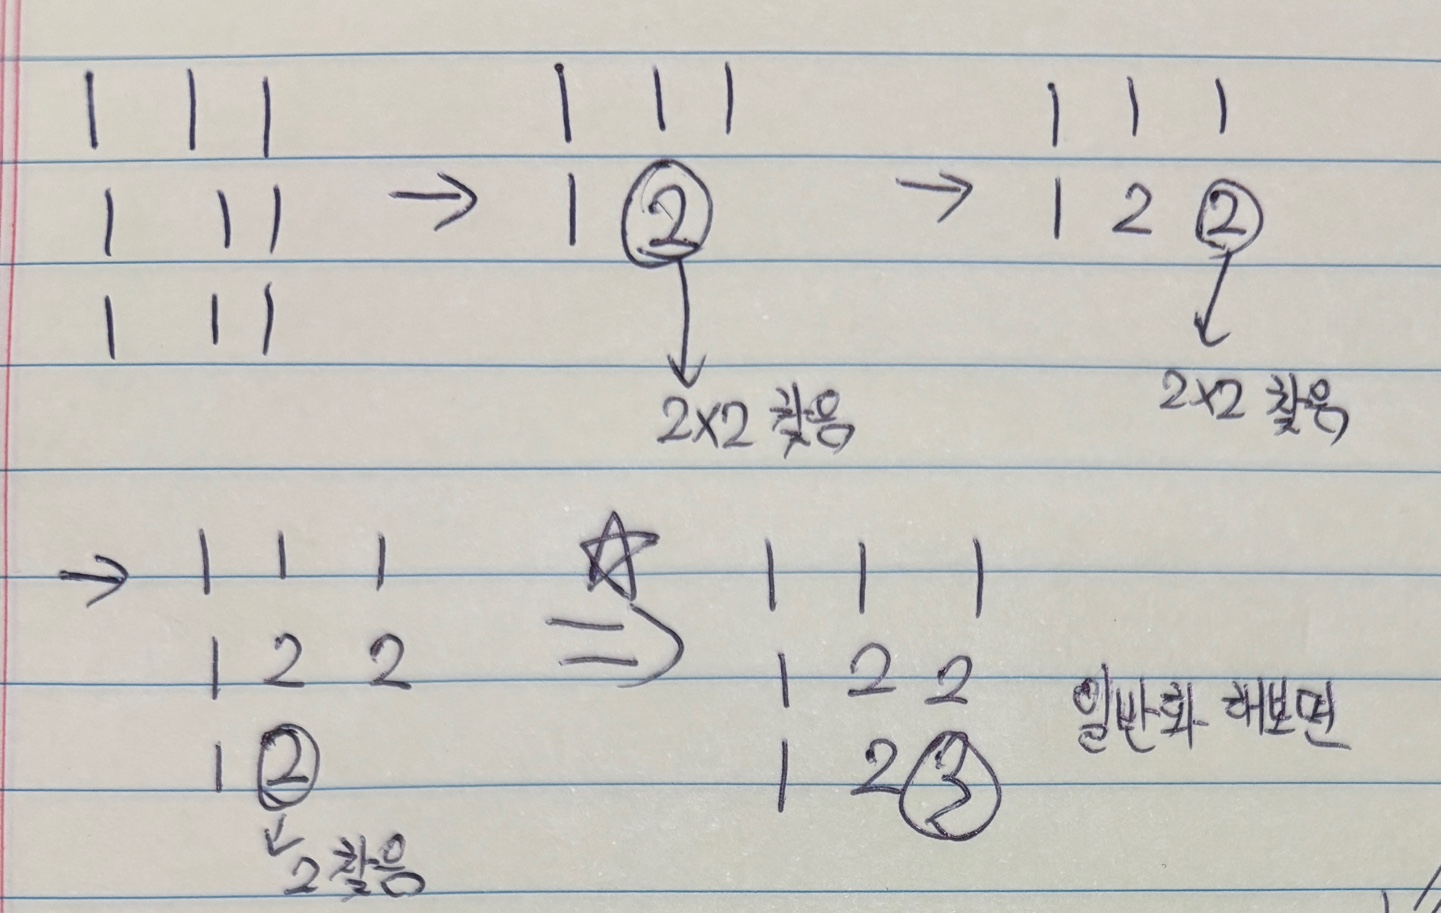 1 1 1 1 1 1 1 1 1
1 1 1 → 1 2 → 1 2 2
1 1 1
2x2 찾음 2x2 찾음
→ 1 1 1 ☆ 1 1 1
1 2 2 ⇒ 1 2 2 일반화 해보면
1 2 1 2 3
2 찾음